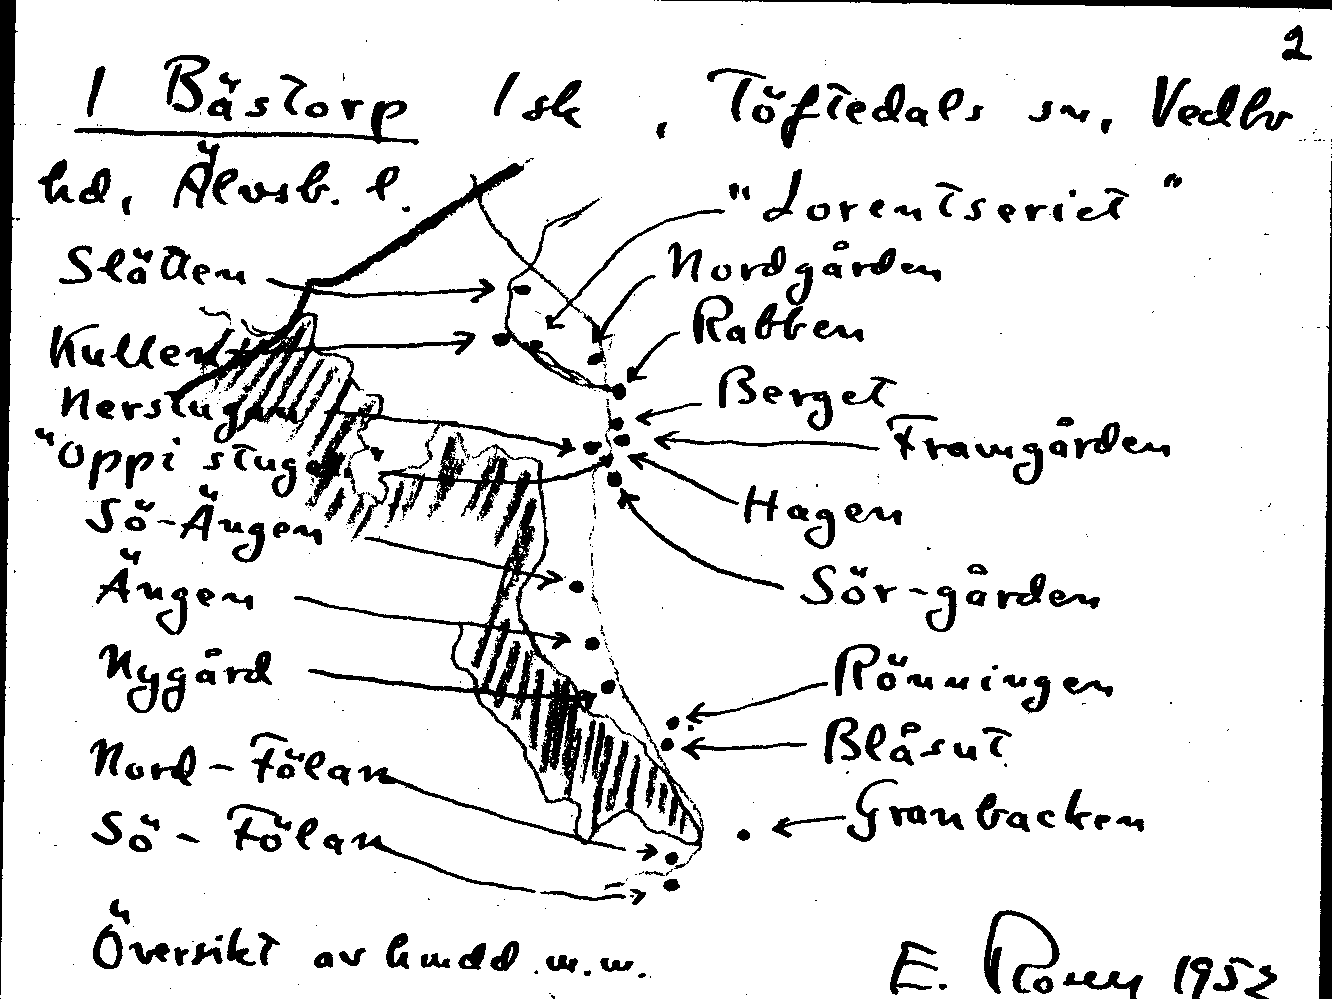 2
1 Bästorp 1 sk, Töftedals sn, Vedbo
hd, Älvsb. l.
"Lorentseriet"
Slätten
Nordgården
Kullen
Rabben
Nerstugan
Berget
"Oppi stuga"
Framgården
Sö-Ängen
Hagen
Ängen
Sör-gården
Nygård
Rönningen
Nord-Fölan
Blåsut
Sö-Fölan
Granbacken
Översikt av hmdd m.m.
E. 1952